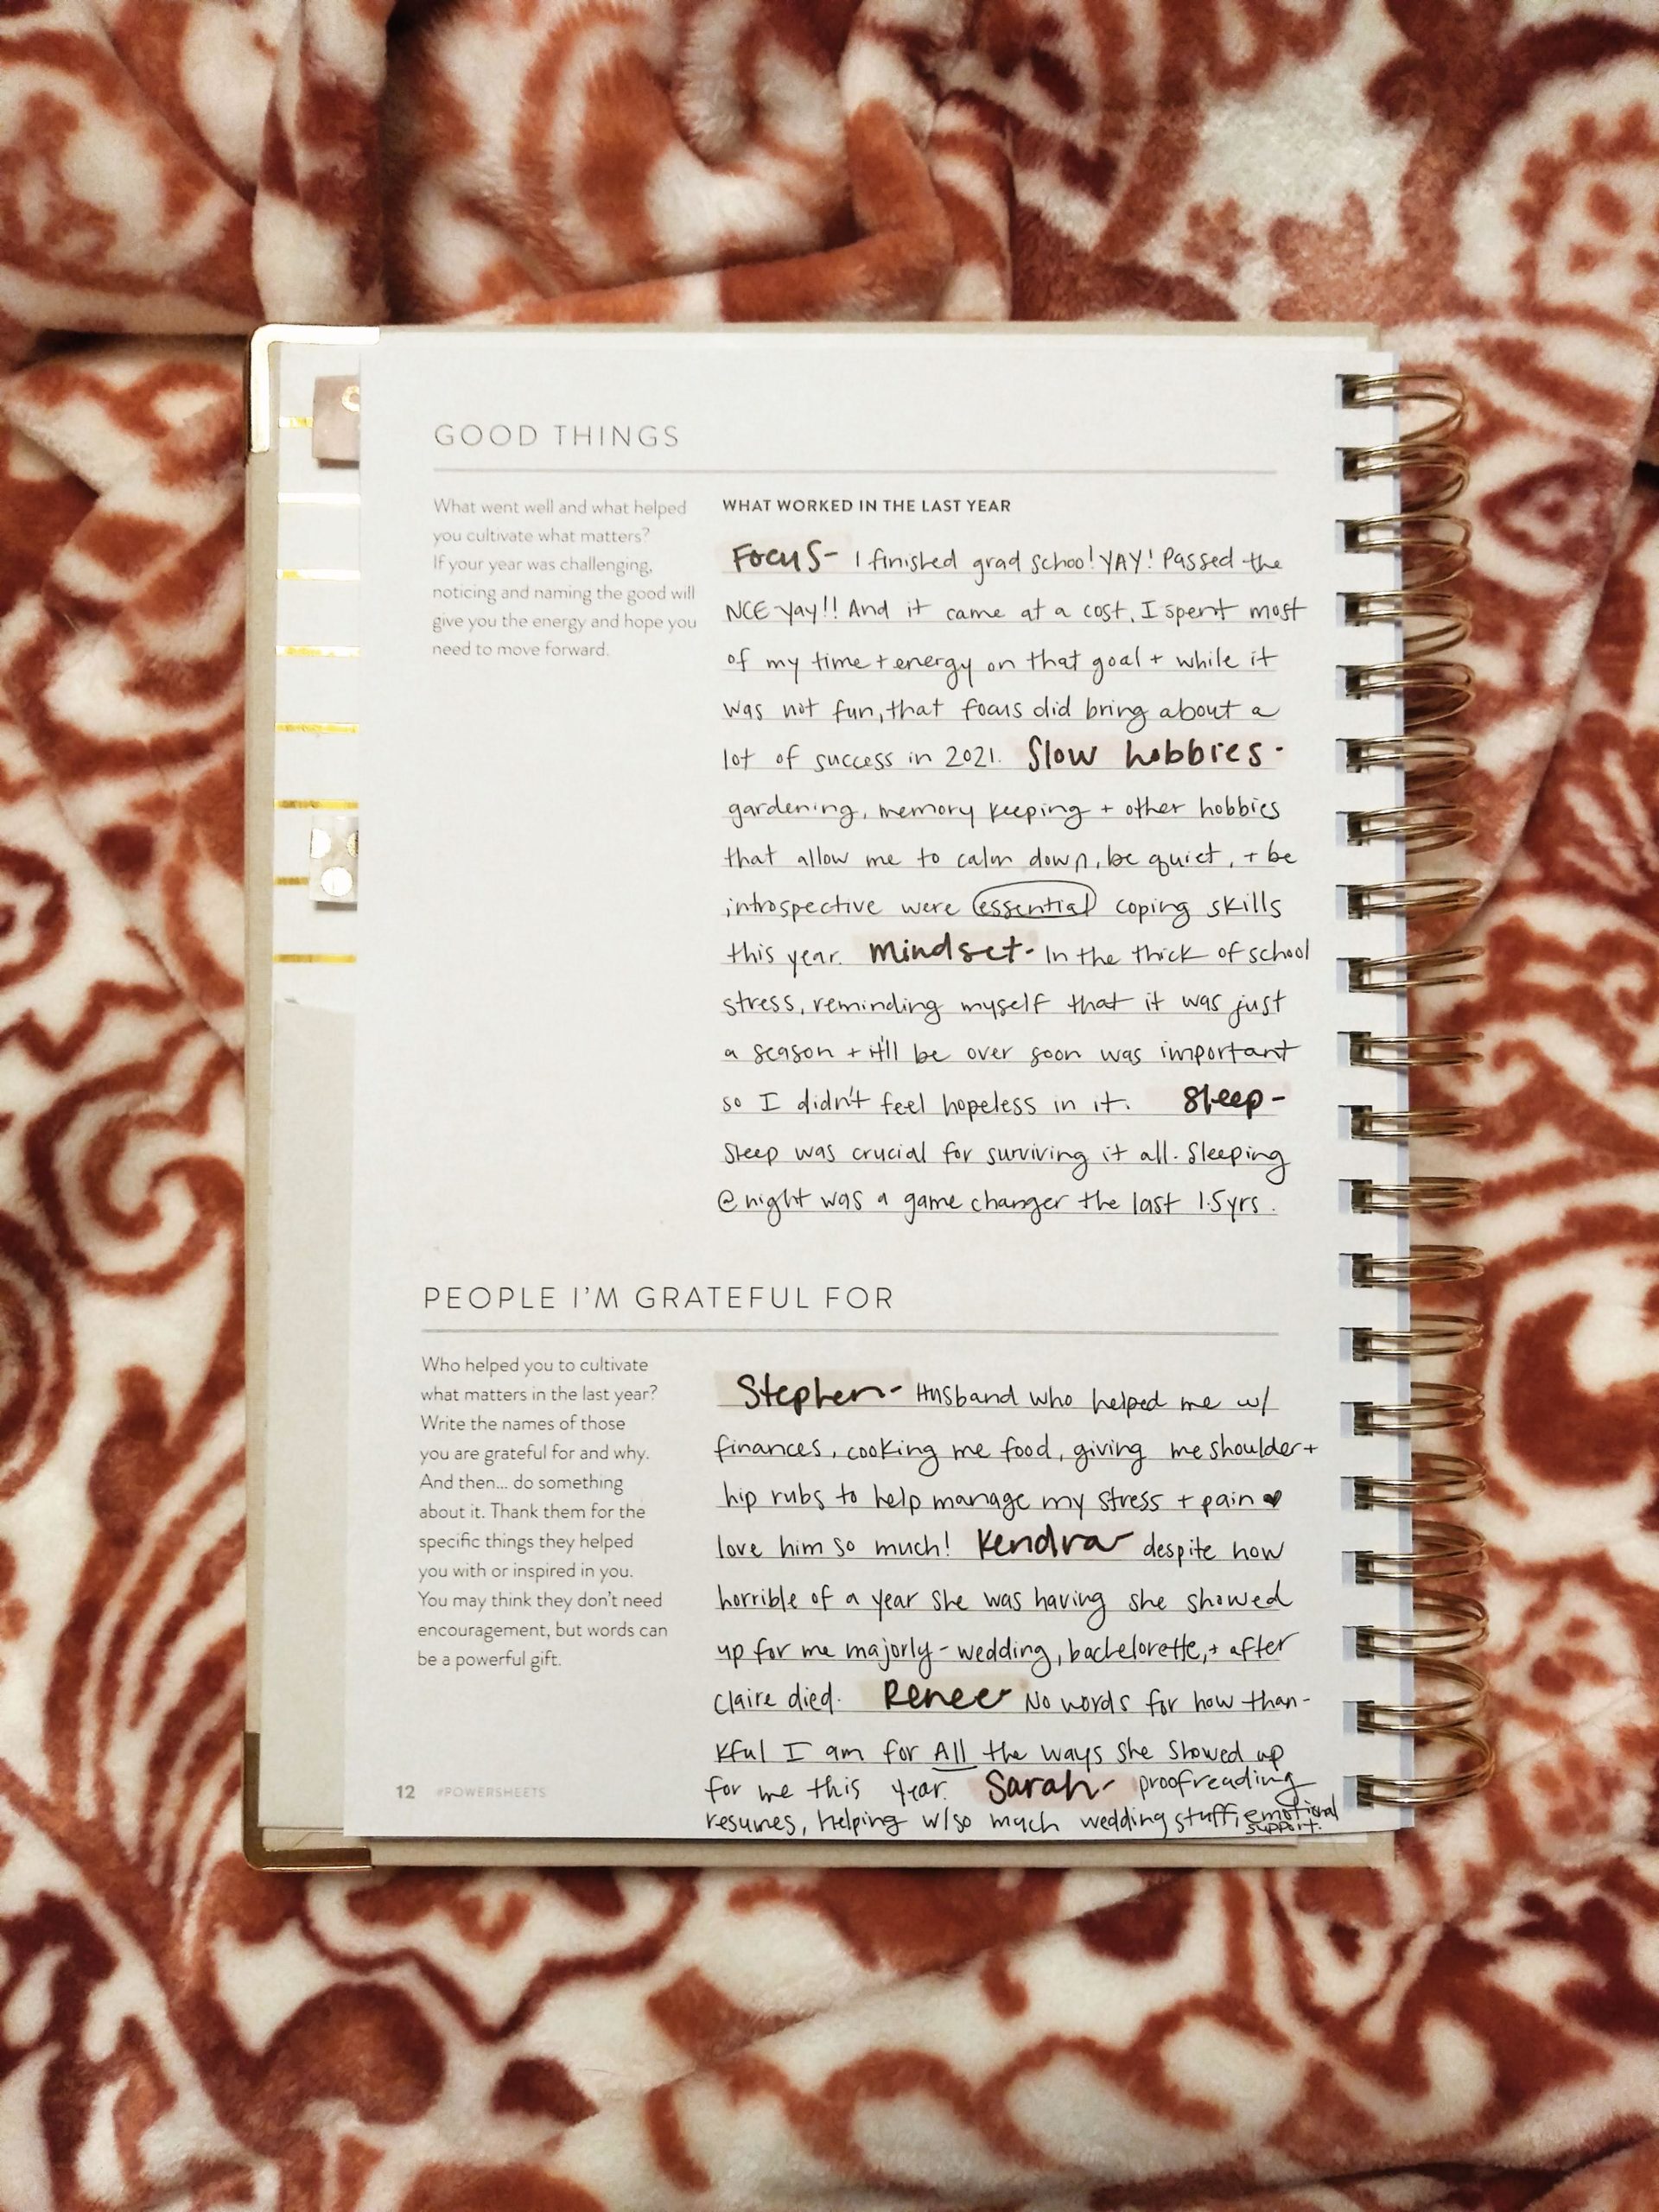 GOOD THINGS
What went well and what helped
you cultivate what matters?
If your year was challenging,
noticing and naming the good will
give you the energy and hope you
need to move forward.
WHAT WORKED IN THE LAST YEAR
Focus- I finished grad school! YAY! Passed the
NCE-yay!! And it came at a cost, I spent most
of my time + energy on that goal + while it
was not fun, that focus did bring about a
lot of success in 2021. Slow hobbies-
gardening, memory keeping + other hobbies
that allow me to calm down, be quiet, + be
introspective were essential coping skills
this year. Mindset- In the thick of school
stress, reminding myself that it was just
a season + it'll be over soon was important
so I didn't feel hopeless in it. Sleep-
sleep was crucial for surviving it all. Sleeping
@ night was a game changer the last 1.5yrs.
PEOPLE I'M GRATEFUL FOR
Who helped you to cultivate
what matters in the last year?
Write the names of those
you are grateful for and why.
And then... do something
about it. Thank them for the
specific things they helped
you with or inspired in you.
You may think they don't need
encouragement, but words can
be a powerful gift.
Stephen- Husband who helped me w/
finances, cooking me food, giving me shoulder +
hip rubs to help manage my stress + pain ♥
love him so much! Kendra- despite how
horrible of a year she was having she showed
up for me majorly - wedding, bachelorette, + after
Claire died. Renee- No words for how than-
kful I am for All the ways she showed up
for me this year. Sarah- proofreading
resumes, helping w/so much wedding stuff, emotional
support.
12 #POWERSHEETS